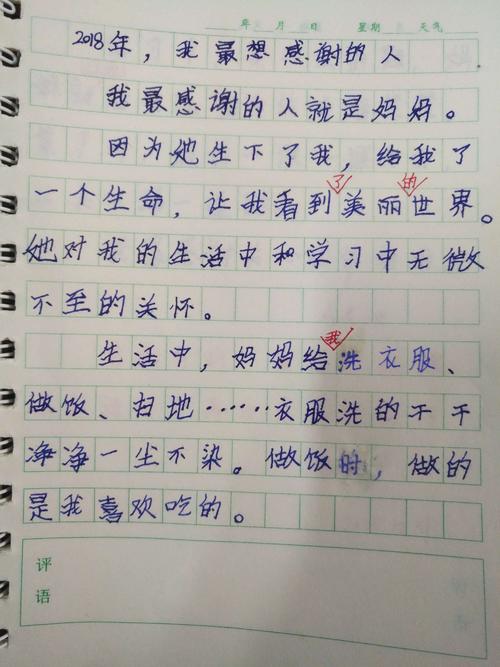 年 月 日 星期 天气
2018年，我最想感谢的人
我最感谢的人就是妈妈。
因为她生下了我，给我了
一个生命，让我看到了美丽的世界。
她对我的生活中和学习中无微
不至的关怀。
生活中，妈妈给我洗衣服、
做饭、扫地……衣服洗的干干
净净一尘不染。做饭时，做的
是我喜欢吃的。
评
语